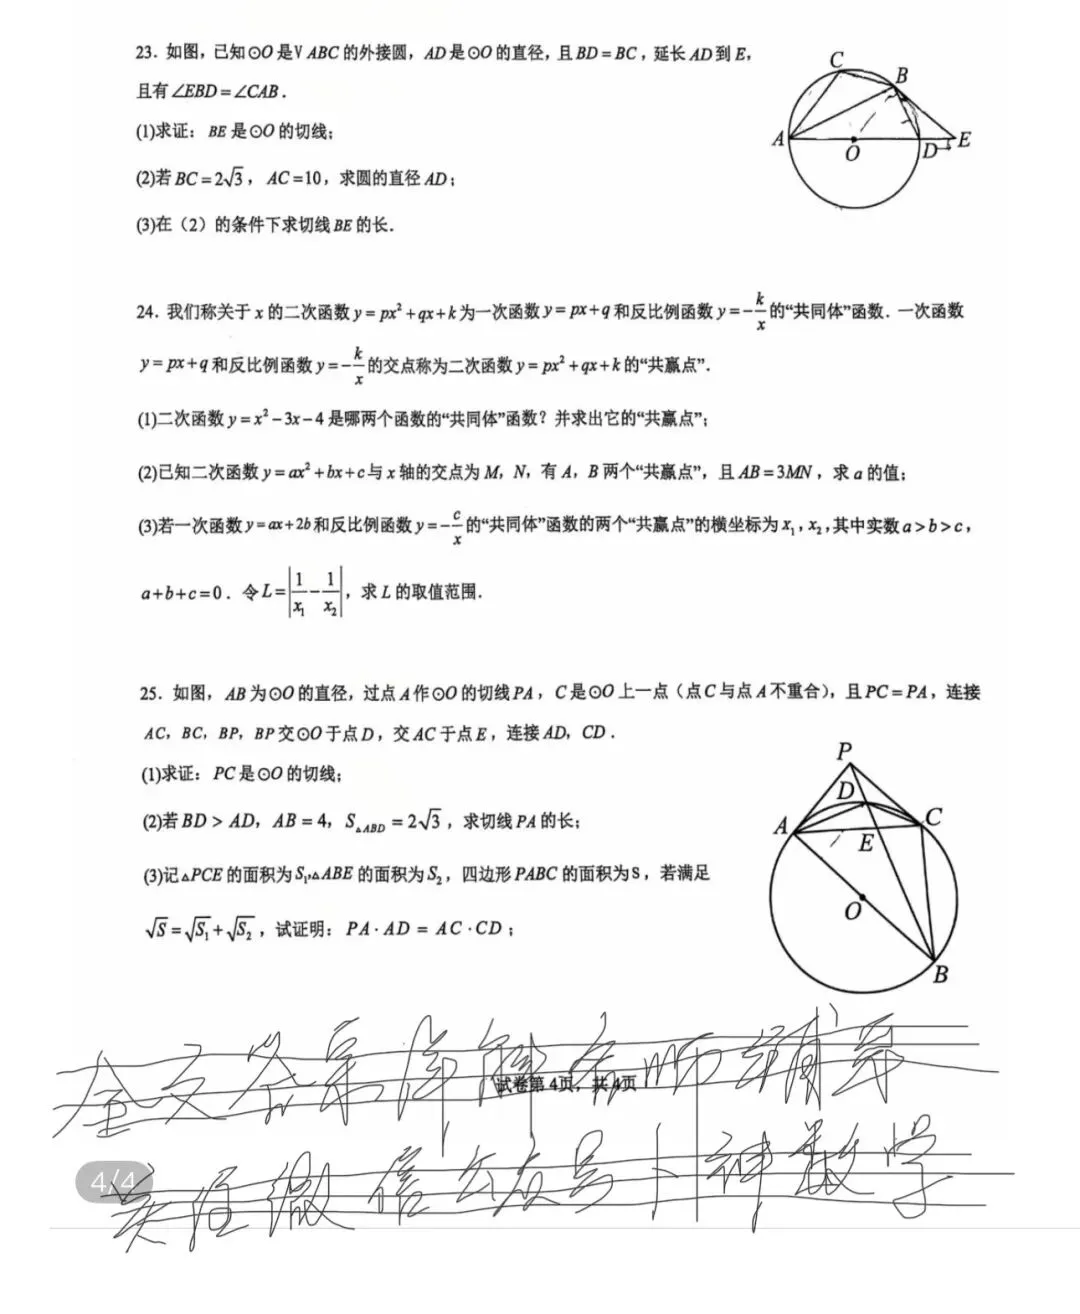 23. 如图，已知⊙O是V ABC的外接圆，AD是⊙O的直径，且BD=BC，延长AD到E，
且有∠EBD=∠CAB．
(1)求证：BE是⊙O的切线；
(2)若BC=2√3，AC=10，求圆的直径AD；
(3)在（2）的条件下求切线BE的长．
C
B
A
O
D
E
24. 我们称关于x的二次函数y=px²+qx+k为一次函数y=px+q和反比例函数y=-k/x的“共同体”函数．一次函数
y=px+q和反比例函数y=-k/x的交点称为二次函数y=px²+qx+k的“共赢点”．
(1)二次函数y=x²-3x-4是哪两个函数的“共同体”函数？并求出它的“共赢点”；
(2)已知二次函数y=ax²+bx+c与x轴的交点为M，N，有A，B两个“共赢点”，且AB=3MN，求a的值；
(3)若一次函数y=ax+2b和反比例函数y=-c/x的“共同体”函数的两个“共赢点”的横坐标为x₁，x₂，其中实数a>b>c，
a+b+c=0．令L=|1/x₁-1/x₂|，求L的取值范围．
25. 如图，AB为⊙O的直径，过点A作⊙O的切线PA，C是⊙O上一点（点C与点A不重合），且PC=PA，连接
AC，BC，BP，BP交⊙O于点D，交AC于点E，连接AD，CD．
(1)求证：PC是⊙O的切线；
(2)若BD>AD，AB=4，S△ABD=2√3，求切线PA的长；
(3)记△PCE的面积为S₁，△ABE的面积为S₂，四边形PABC的面积为S，若满足
√S=√S₁+√S₂，试证明：PA·AD=AC·CD；
P
D
A
C
E
O
B
全文答案详解名师辅导
试卷第4页，共4页
关注微信公众号卜神数学
4/4